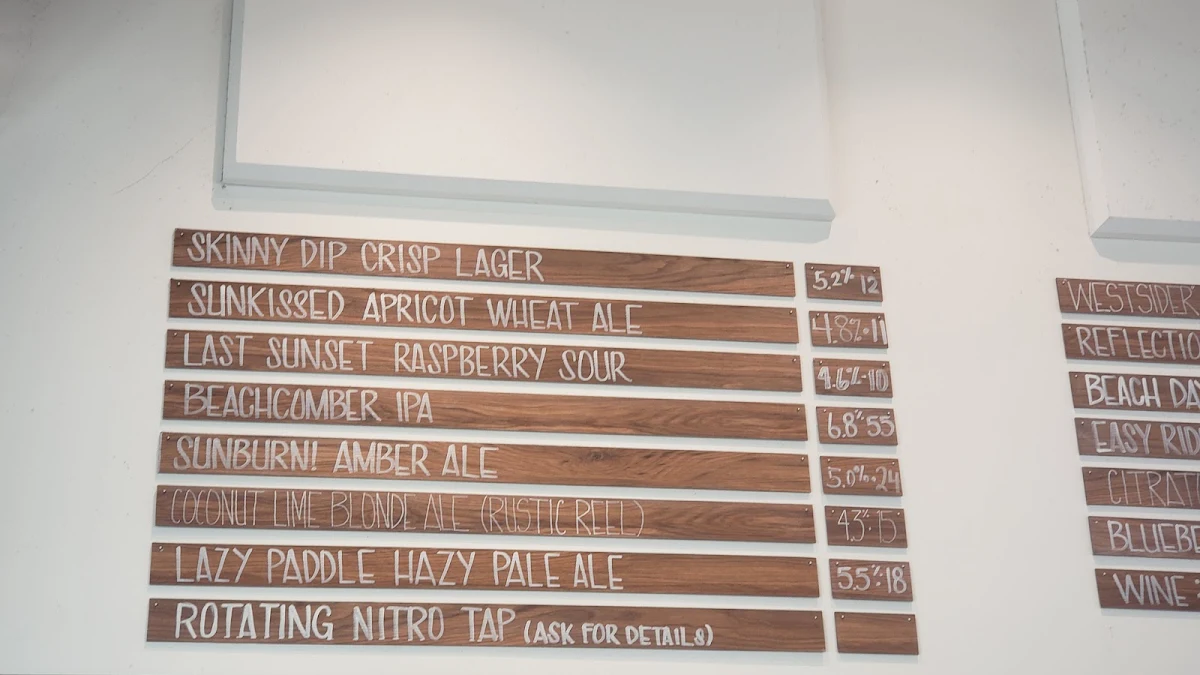 SKINNY DIP CRISP LAGER 5.2% 12
SUNKISSED APRICOT WHEAT ALE 4.8%·11
LAST SUNSET RASPBERRY SOUR 4.6%·10
BEACHCOMBER IPA 6.8%·55
SUNBURN! AMBER ALE 5.0%·24
COCONUT LIME BLONDE ALE (RUSTIC REEL) 4.3%·15
LAZY PADDLE HAZY PALE ALE 5.5%·18
ROTATING NITRO TAP (ASK FOR DETAILS)
WESTSIDER
REFLECTIO
BEACH DA
EASY RID
CITRAT
BLUEBE
WINE